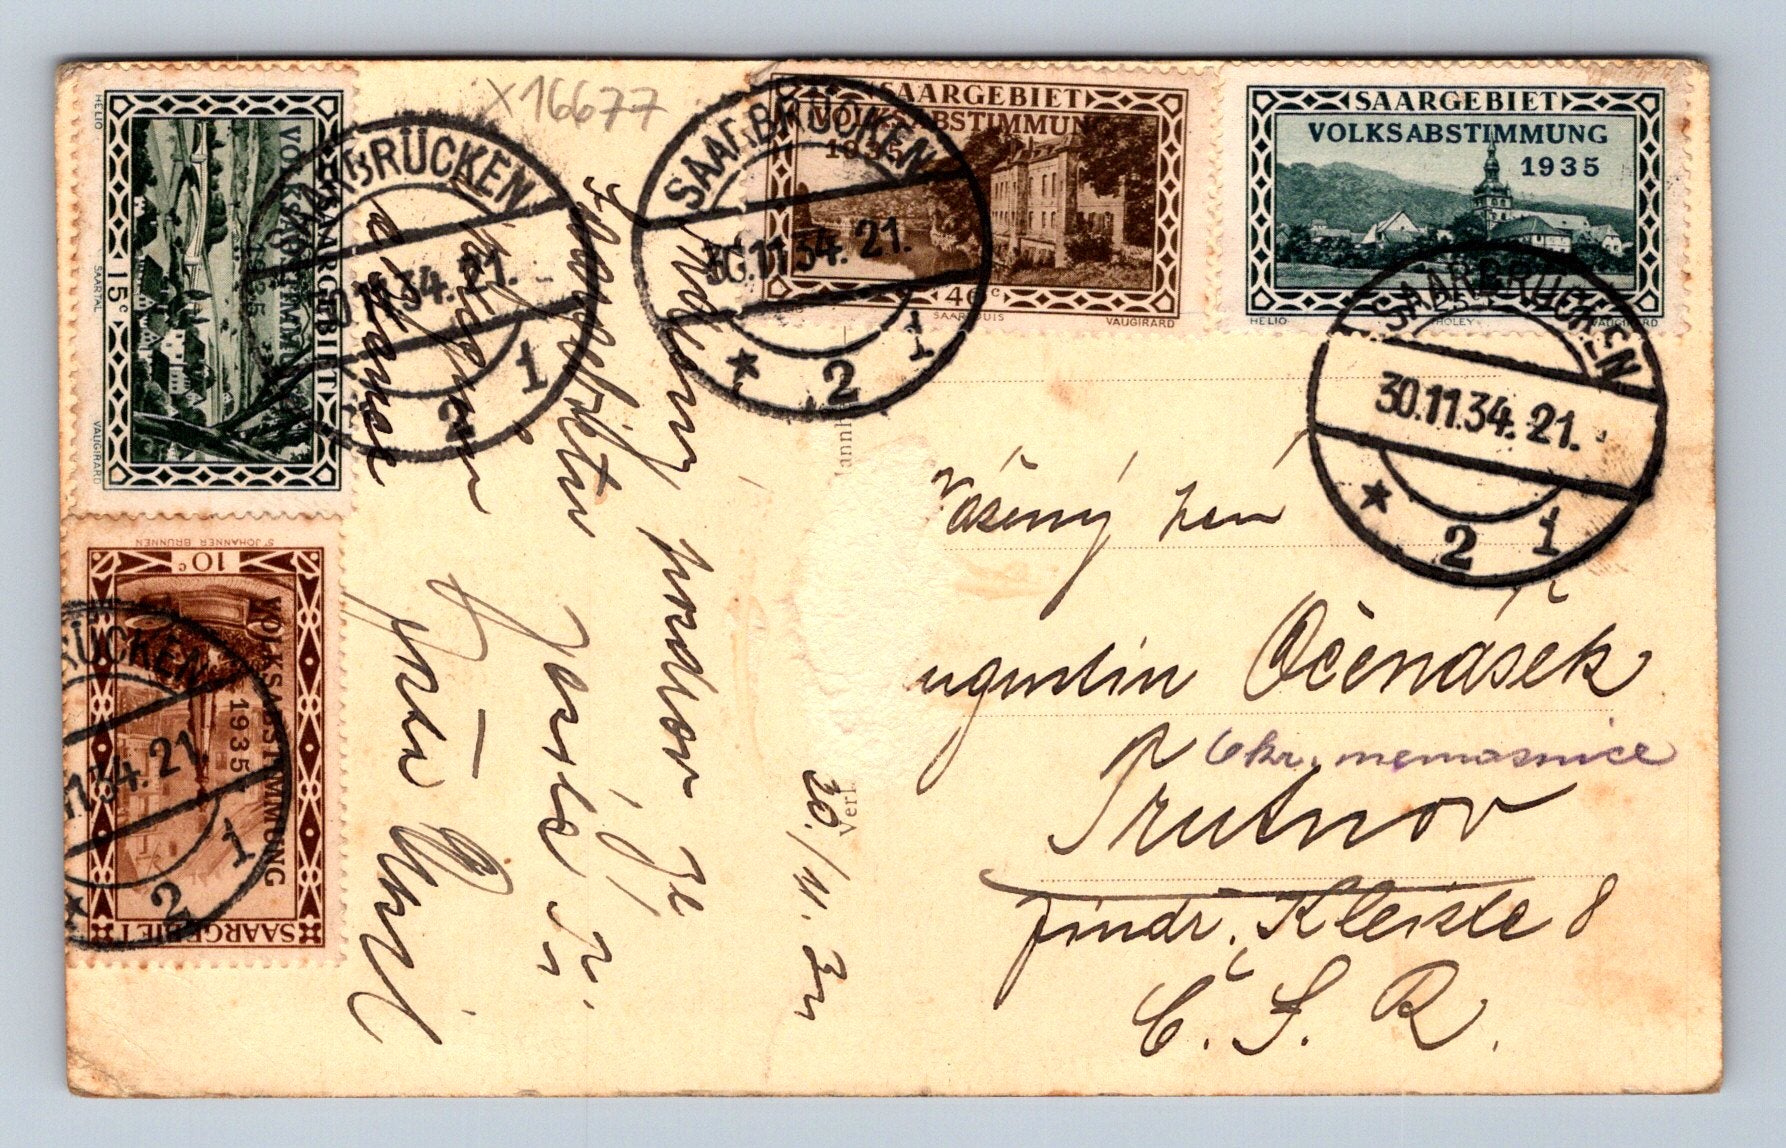 X16677
SAARGEBIET
VOLKSABSTIMMUNG
1935
15c
HELIO
SAARTAL
VAUGIRARD
SAARBRÜCKEN
30.11.34. 21.
* 2 1
SAARGEBIET
VOLKSABSTIMMUNG
1935
40c
SAARLOUIS
VAUGIRARD
SAARBRÜCKEN
30.11.34. 21.
* 2 1
SAARGEBIET
VOLKSABSTIMMUNG
1935
HELIO
THOLEY
VAUGIRARD
SAARBRÜCKEN
30.11.34. 21.
* 2 1
SAARGEBIET
VOLKSABSTIMMUNG
1935
10c
ST JOHANNER BRUNNEN
BRÜCKEN
11.34. 21
* 2 1
30./11. 34
Krásný pozdrav ze
Verl.
Vážený pan
ugustin Očenášek
Okr. nemocnice
Trutnov
Jindr. Kleista 8
Č. S. R.